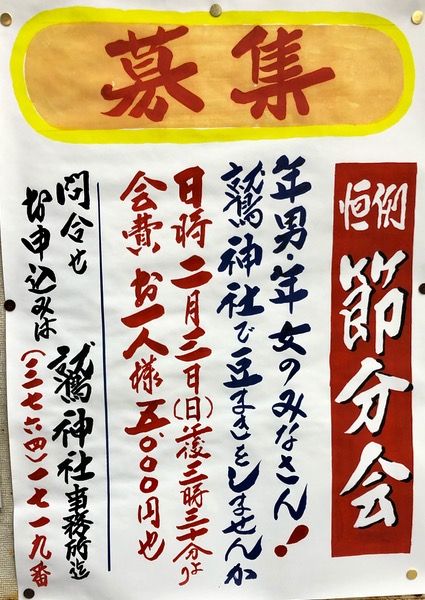 募集
恒例
節分会
年男・年女のみなさん!
鷲神社で豆まきをしませんか
日時 二月三日(日)午後三時三十分より
会費 お一人様 五、〇〇〇円也
問合せ
お申込みは
鷲神社事務所迄
(三七六四)一七一九番